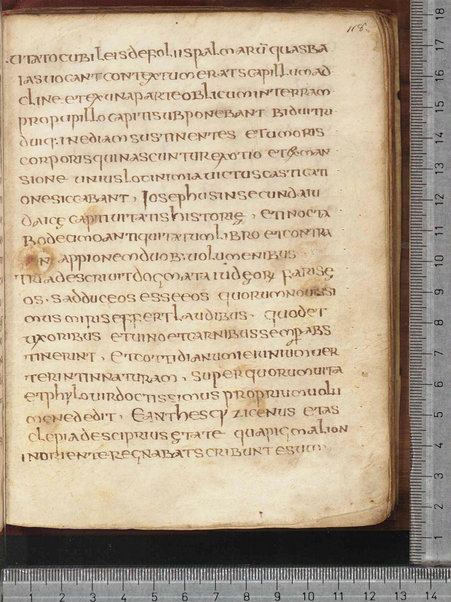 118.
UITATO CUBILE IS DE FOLIIS PALMARŪ QUAS BA
IAS UOCANT CONTEXTUM ERAT SCAPILLUM AD
CLINE ET EX UNA PARTE OBLICUM IN TERRAM
PRO PUPILLO CAPITI SUBPONEBANT BIDUI TRI
DUIQ INEDIAM SUSTINENTES ET UMORIS
CORPORIS QUI NASCUNTUR EX OTIO ET EX MAN
SIONE UNIUS LOCI NIMIA UICTUS CASTICATI
ONE SICCABANT, IOSEPHUS IN SECUNDA IU
DAICĘ CAPTIUITATIS HISTORIĘ, ET IN OCTA
BO DECUMO ANTIQUITATUM LIBRO ET CONTRA
APPIONEM DUOB· UOLUMENIBUS
TRIA DESCRIUIT DOGMATA IUDĘORŪ FARISĘ
OS, SADDUCEOS ESSEEOS QUORUM NOUISSI
MUS MIRIS EFFERT LAUDIBUS, QUOD ET
UXORIBUS ET UINO ET CARNIBUS SEMPER ABS
TINERINT, ET COTTIDIANUM IEIUNIUM UER
TERINT IN NATURAM, SUPER QUORUM UITA
ET PHYLO UIR DOCTISSIMUS PROPRIUM UOLU
MEN EDEDIT, EANTHES CYZICENUS ET AS
CLEPIADES CIPRIUS ĘTATE QUA PIGMALION
IN ORIENTE REGNABAT SCRIBUNT ESUM
18
17
16
15
14
13
12
11
10
9
8
7
6
5
4
3
2
1
1 2 3 4 5 6 7 8 9 10 11 12 13 14